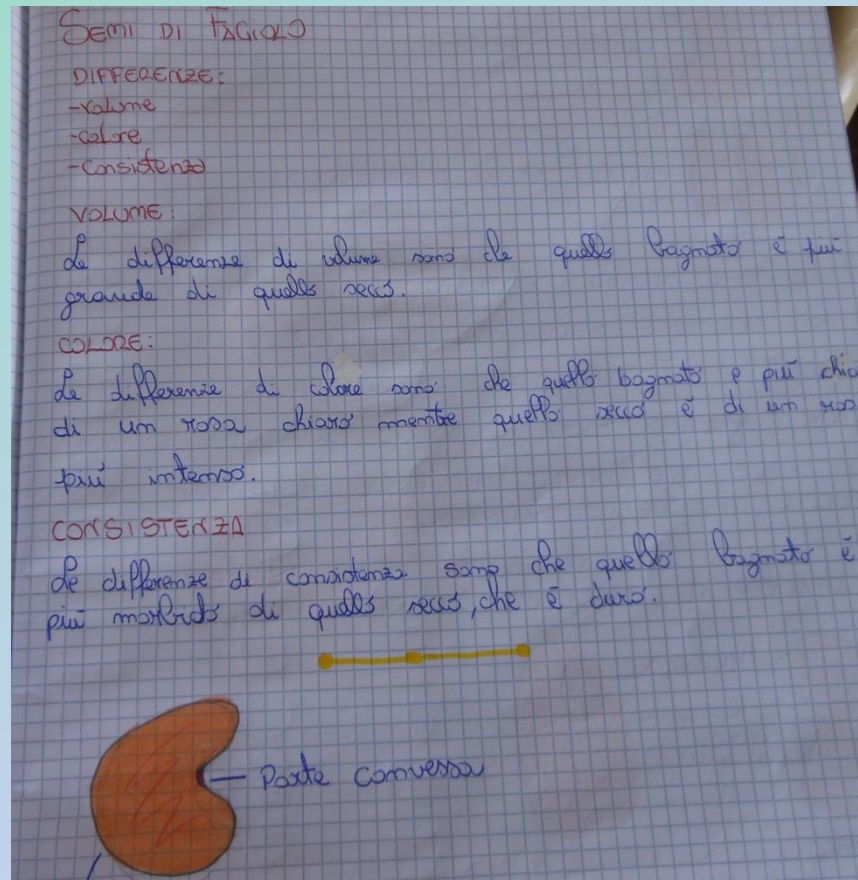 SEMI DI FAGIOLO
DIFFERENZE:
-volume
-colore
-consistenza
VOLUME:
Le differenze di volume sono che quello bagnato è più
grande di quello secco.
COLORE:
Le differenze di colore sono che quello bagnato e più
di un rosa chiaro mentre quello secco è di un
più intenso.
CONSISTENZA
Le differenze di consistenza sono che quello bagnato è
più morbido di quello secco, che è duro.
Parte convessa